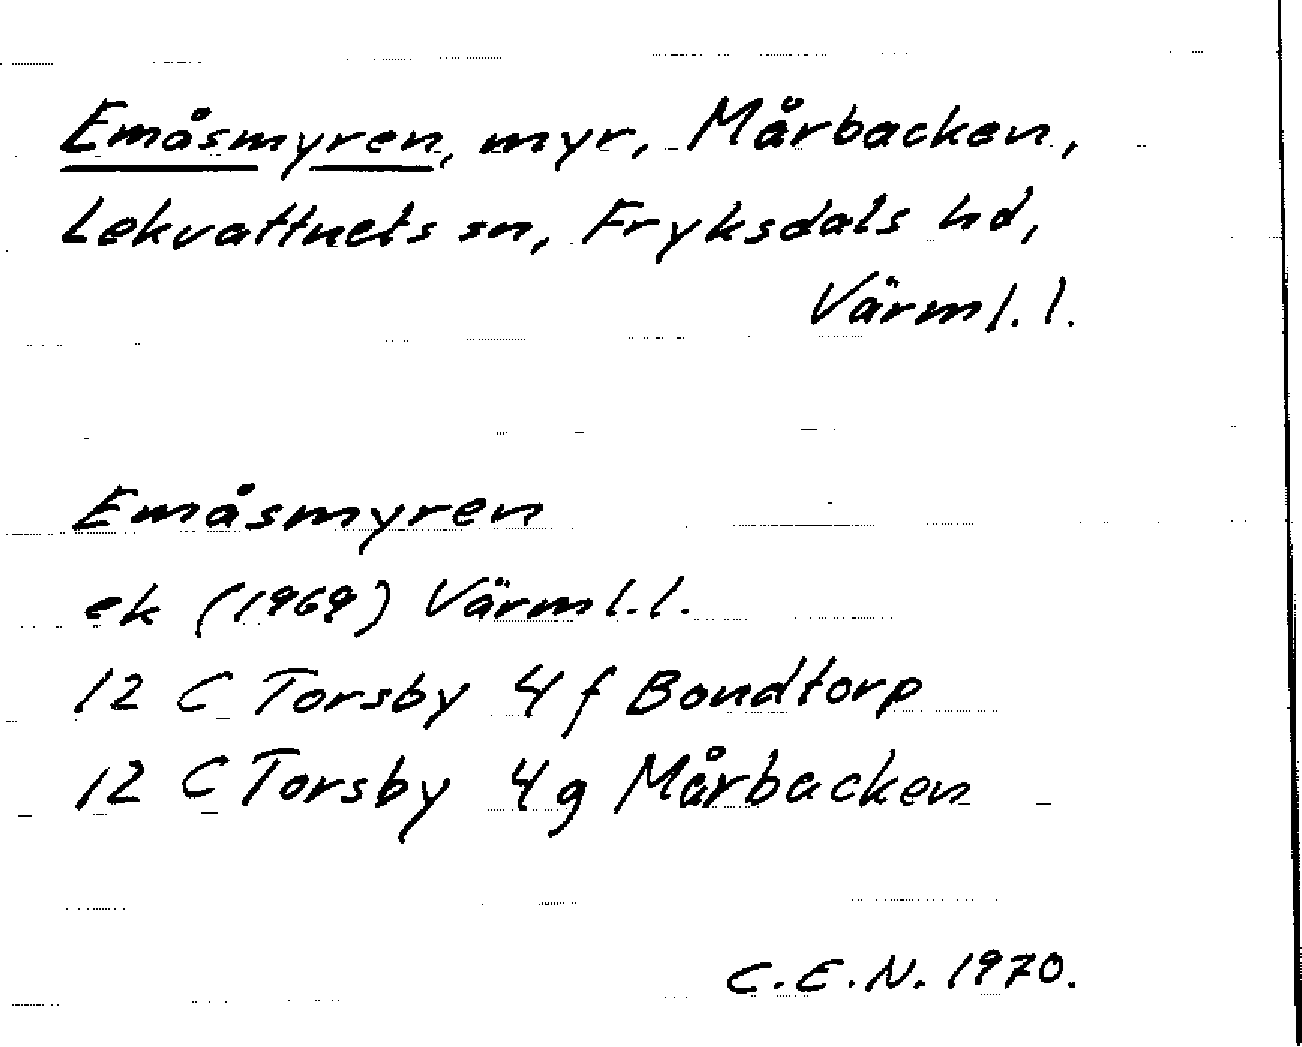 Emåsmyren, myr, Mårbacken,
Lekvattnets sn, Fryksdals hd,
Värml.l.
Emåsmyren
ek (1969) Värml.l.
12 C Torsby 4 f Bondtorp
12 C Torsby 4 g Mårbacken
C.E.N. 1970.